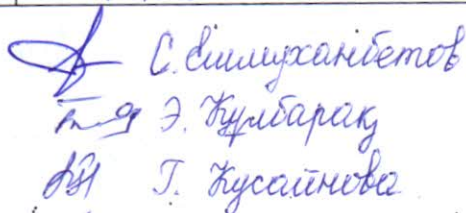 С. Ешмуханбетов
Э. Құлбарақ
Г. Кусаинова